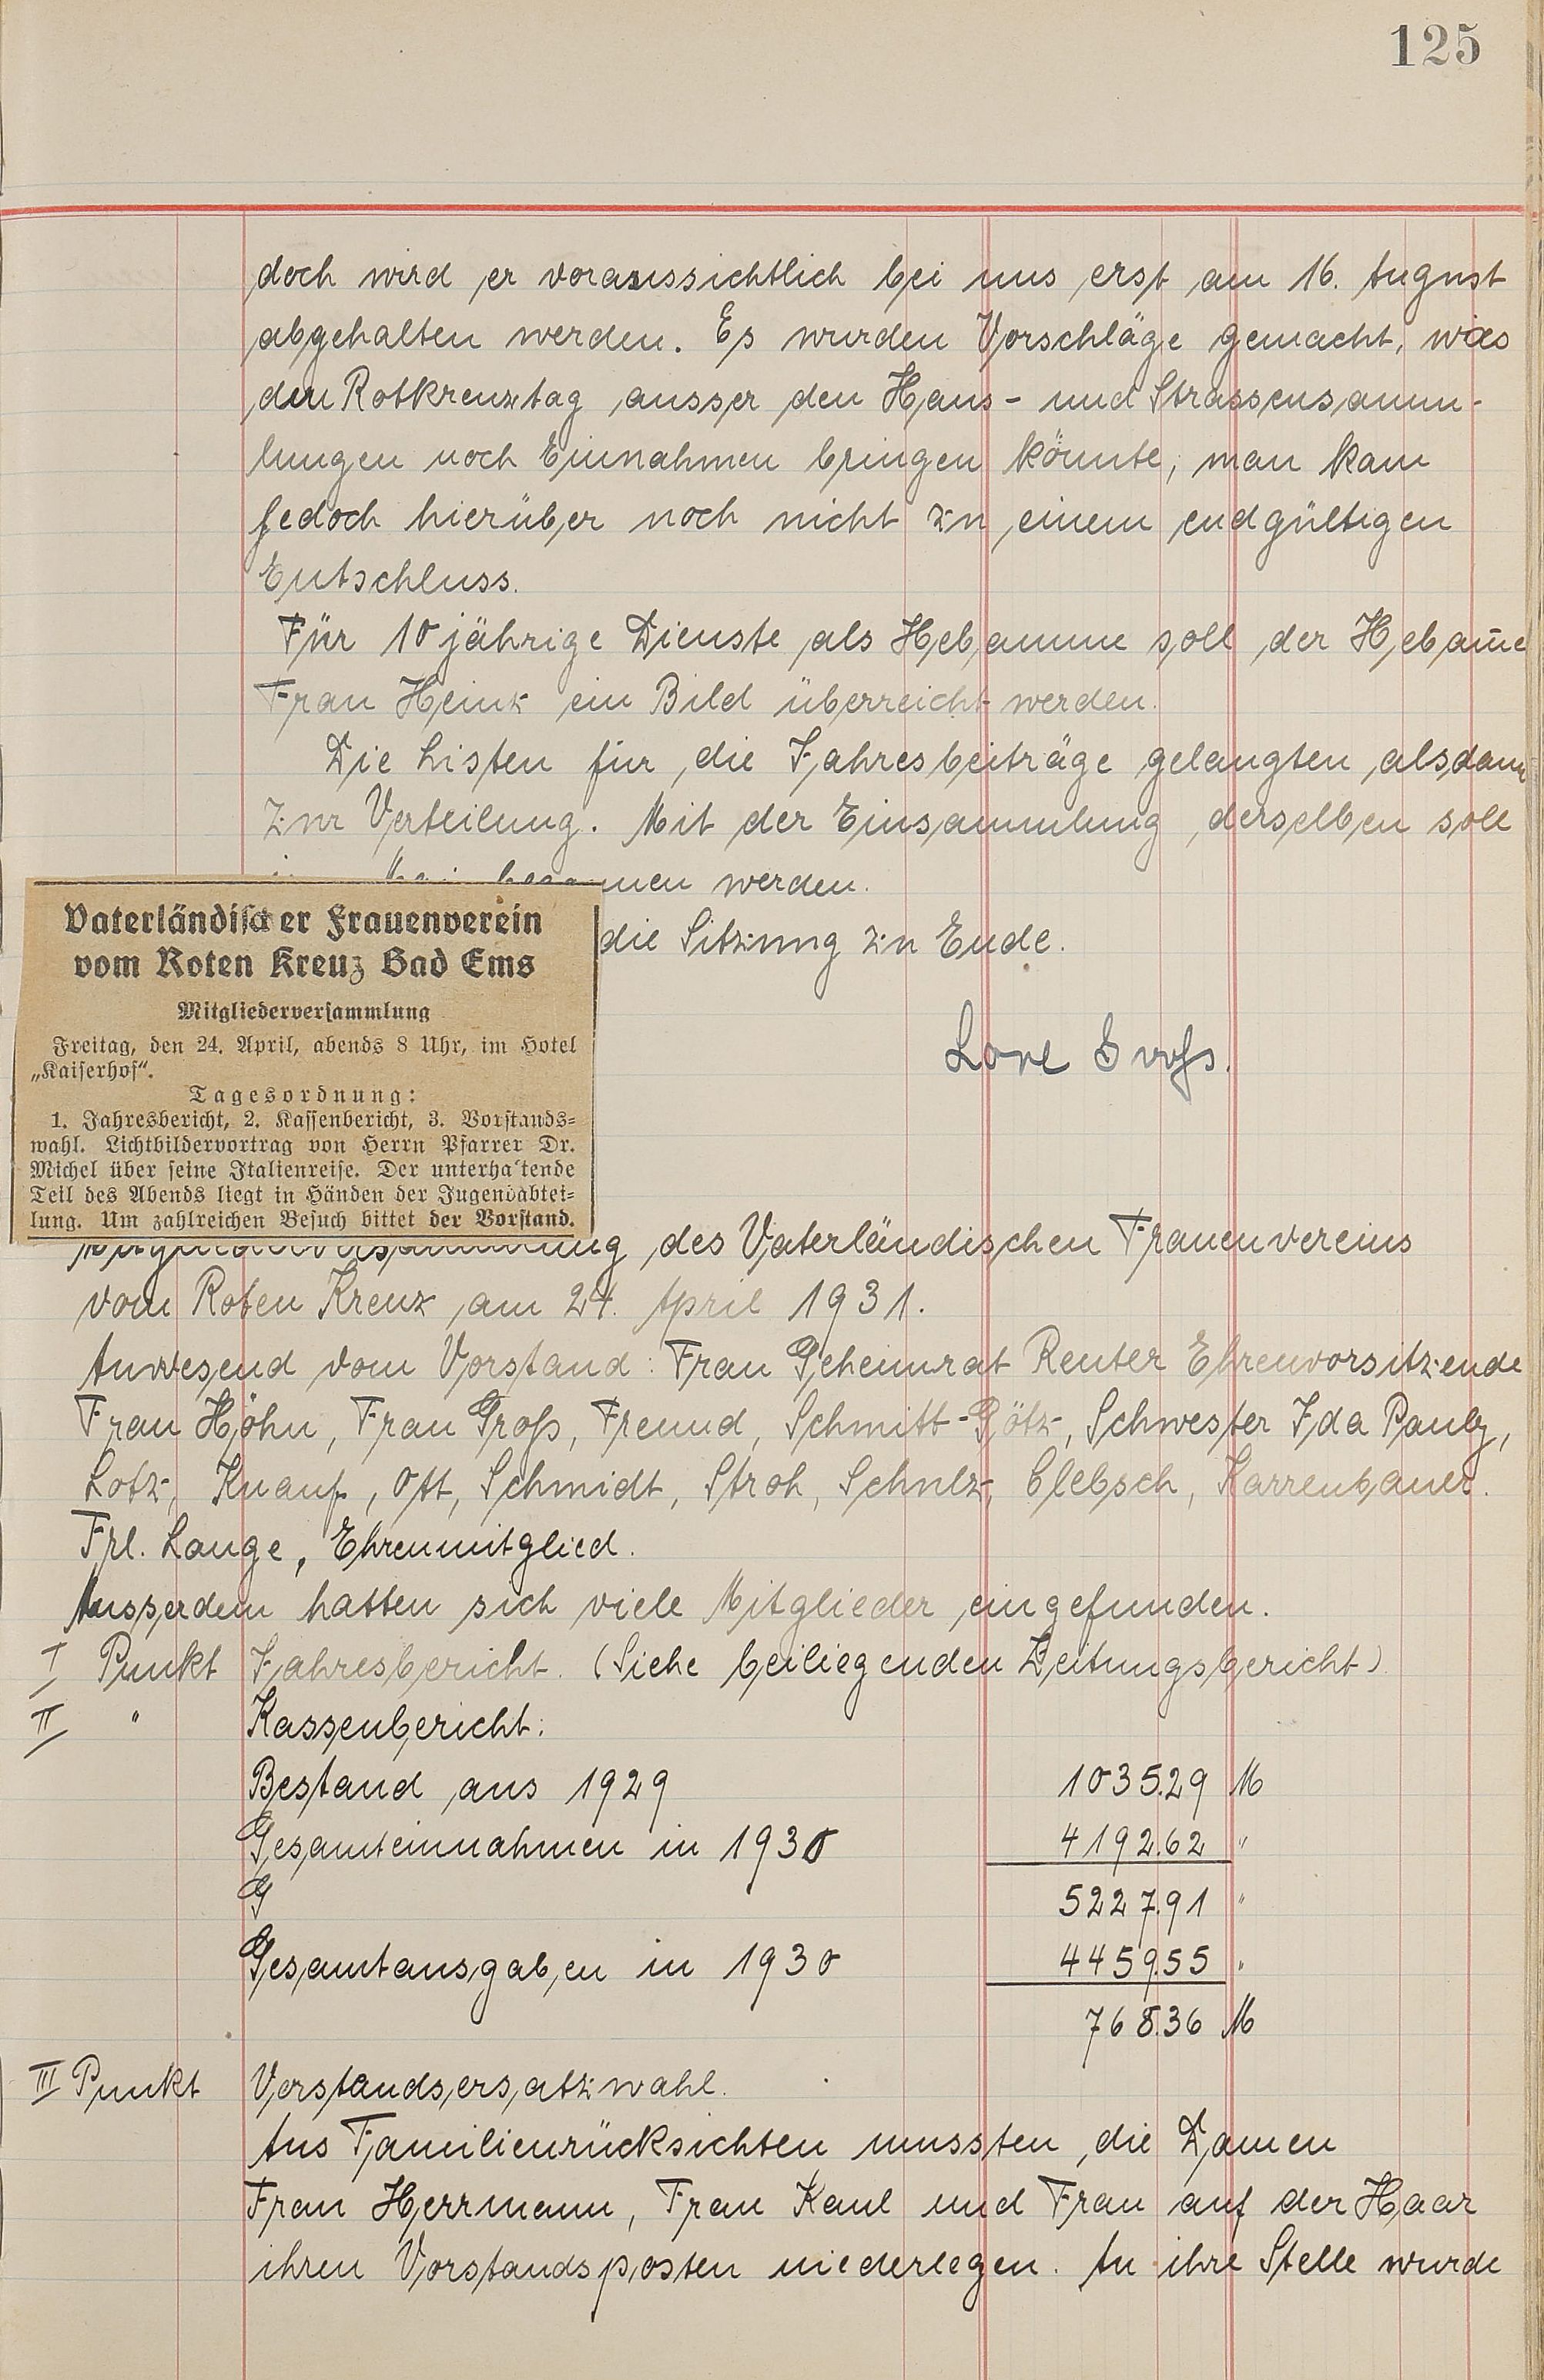 125
doch wird er voraussichtlich bei uns erst am 16. August
abgehalten werden. Es wurden Vorschläge gemacht, wies
der Rotkreuztag ausser den Haus- und Strassensamm-
lungen noch Einnahmen bringen könnte, man kam
jedoch hierüber noch nicht zu einem endgültigen
Entschluss.
Für 10 jährige Dienste als Hebamme soll der Hebam̄e
Frau Heink ein Bild überreicht werden.
Die Listen für die Jahresbeiträge gelangten alsdann
zur Verteilung. Mit der Einsammlung derselben soll
werden.
die Sitzung zu Ende.
Vaterländischer Frauenverein
vom Roten Kreuz Bad Ems
Mitgliederversammlung
Freitag, den 24. April, abends 8 Uhr, im Hotel
„Kaiserhof“.
Tagesordnung:
1. Jahresbericht, 2. Kassenbericht, 3. Vorstands-
wahl. Lichtbildervortrag von Herrn Pfarrer Dr.
Michel über seine Italienreise. Der unterhaltende
Teil des Abends liegt in Händen der Jugendabtei-
lung. Um zahlreichen Besuch bittet der Vorstand.
Lore Groß.
Mitgliederversammlung des Vaterländischen Frauenvereins
vom Roten Kreuz am 24. April 1931.
Anwesend vom Vorstand: Frau Geheimrat Reuter Ehrenvorsitzende
Frau Höhn, Frau Groß, Freund, Schmitt-Götz, Schwester Ida Pauly,
Lotz, Knauf, Ott, Schmidt, Stroh, Schulz, Clebsch, Karrenbauer.
Frl. Lange, Ehrenmitglied.
Ausserdem hatten sich viele Mitglieder eingefunden.
I Punkt Jahresbericht. (Siehe beiliegenden Zeitungsbericht)
II " Kassenbericht:
Bestand aus 1929 1035.29 M
Gesamteinnahmen in 1930 4192.62 "
G 5227.91 "
Gesamtausgaben in 1930 4459.55 "
768.36 M
III Punkt Vorstandsersatzwahl.
Aus Familienrücksichten mussten die Damen
Frau Herrmann, Frau Kaul und Frau auf der Haar
ihren Vorstandsposten niederlegen. An ihre Stelle wurde